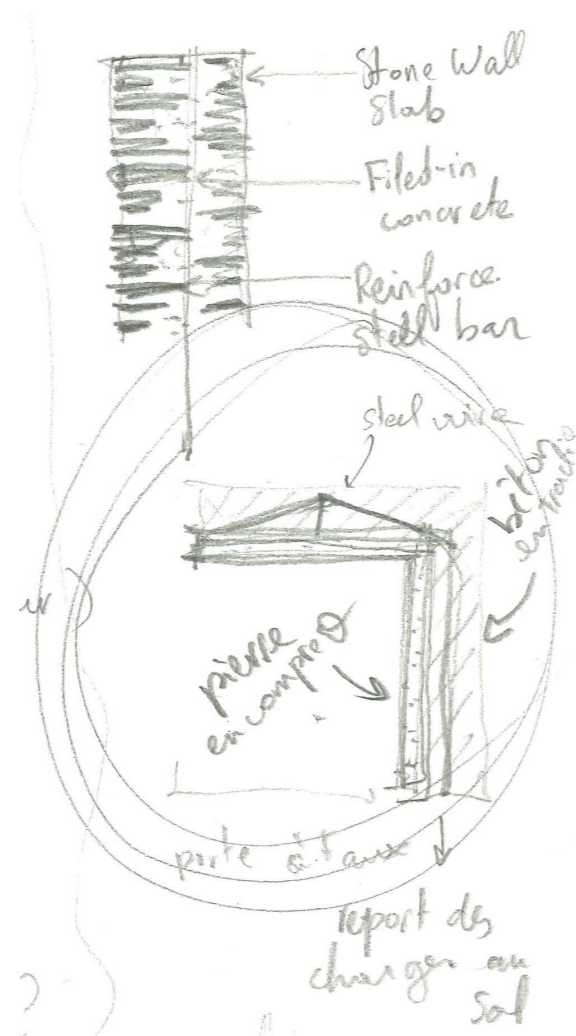 Stone Wall
Slab
Filed-in
concrete
Reinforce
stell bar
steel wire
béton
pierre
en compre
porte à faux
report des
charges au
sol